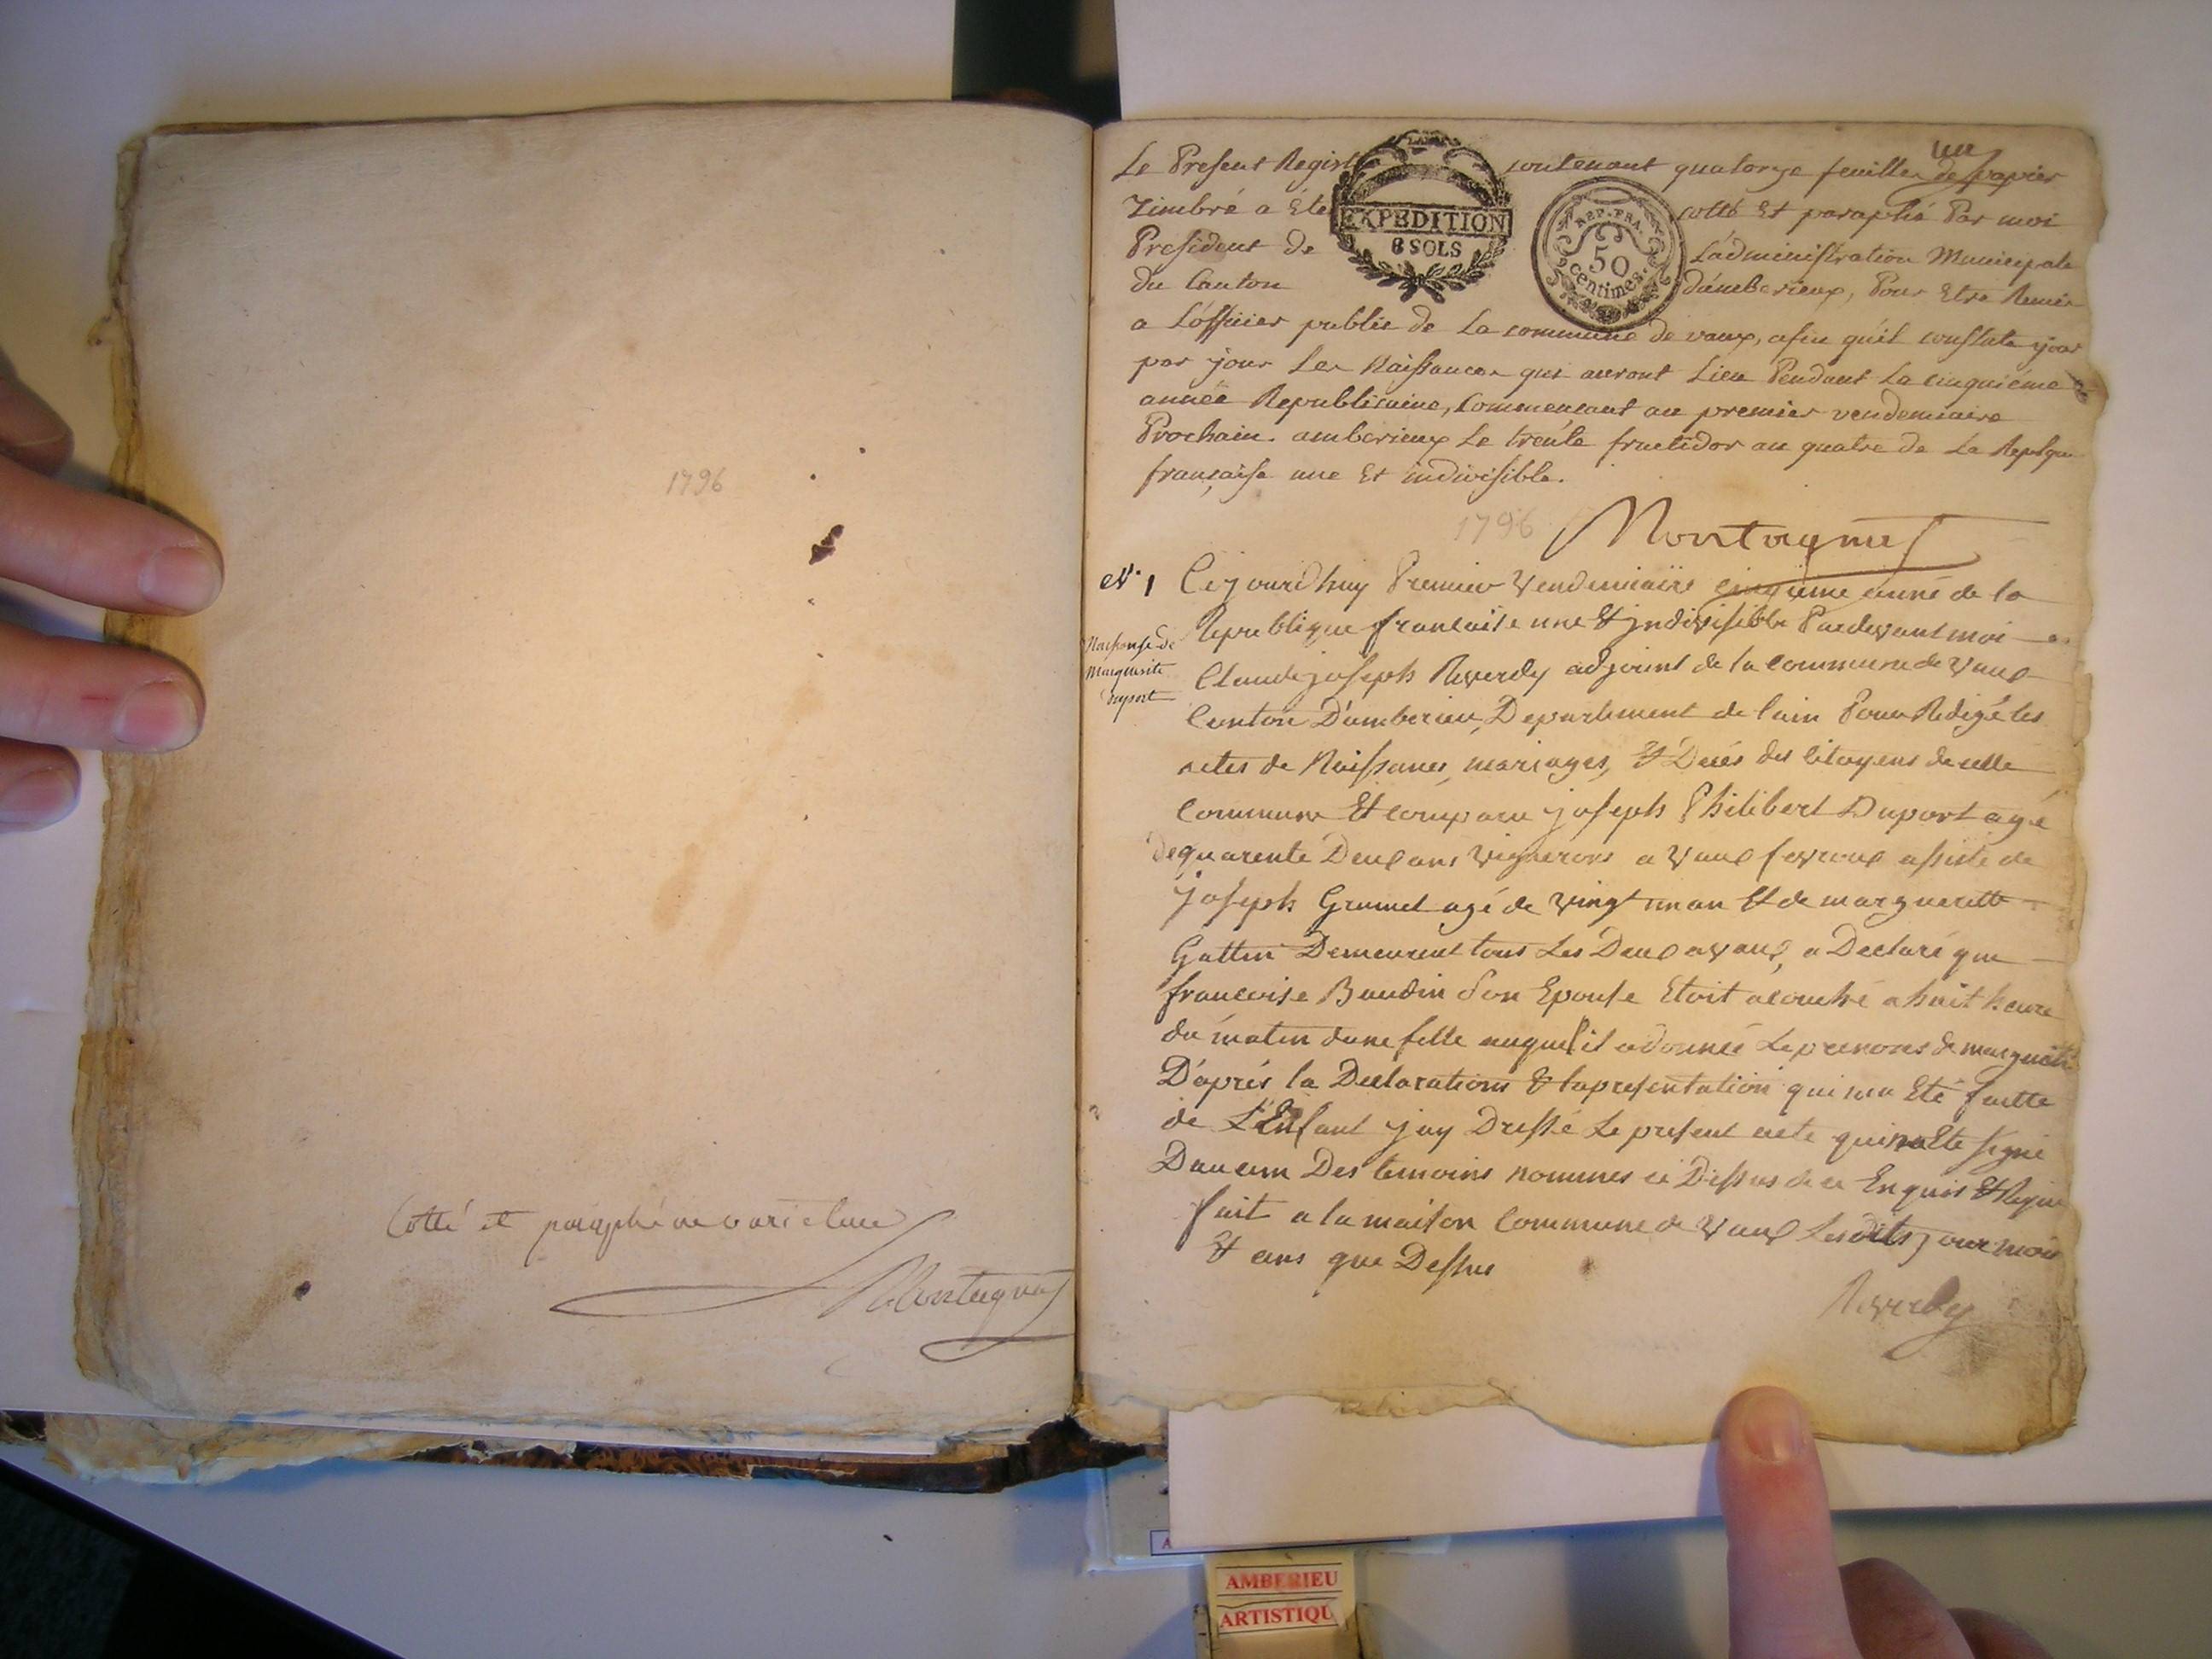 1796
Cotté et paraphé ne varietur
Montagnat
un
Le Present Regist contenant quatorze feuilles de papier
Timbré a Eté cotté Et paraphé Par moi
President de L'administration Municipale
du Canton d'amberieux, Pour Etre Remis
a L'officier public de La commune de vaux, afin qu'il constate jour
par jour Les Naissances qui auront Lieu Pendant La cinquiéme
année Republicaine, Commencant au premier vendemiaire
Prochain. amberieux Le trente fructidor an quatre de La Repbque
française une Et indivisible.
EXPEDITION
6 SOLS
REP. FRA.
50
centimes.
1796
Montagnat
N. 1
Naissanse de
Marguerite
Duport
Cejourdhuy Premier Vendemiaire cinqieme anné de la
Republique francaise une & jndivisible Pardevant moi
Claude joseph Reverdy adjoint de la commune de Vaux
Canton D'amberieu, Departement de l'ain Pour Redigé les
actes de Naissances, mariages, & Decés des Citoyens de celle
Commune Et comparu joseph Philibert Duport agé
de quarente Deux ans Vignerons a Vaux fevroux assiste de
joseph Grumet agé de Vingt un an Et de margueritte
Gottin Demeurent tous Les Deux a Vaux, a Declaré que
francoise Baudin Son Epouse Etoit acouché a huit heure
du matin dune fille auquel il a donnée Le prenoms de marguerite
D'aprés la Declarations & la presentation qui ma Eté faitte
de L'Enfant jay Dressé Le present acte qui na Ete signé
Daucun Des temoins nommes ci Dessus de ce Enquis & Requis
fait a la maison Commune de Vaux Lesdits jour mois
& ans que Dessus
Reverdy
AMBERIEU
ARTISTIQU